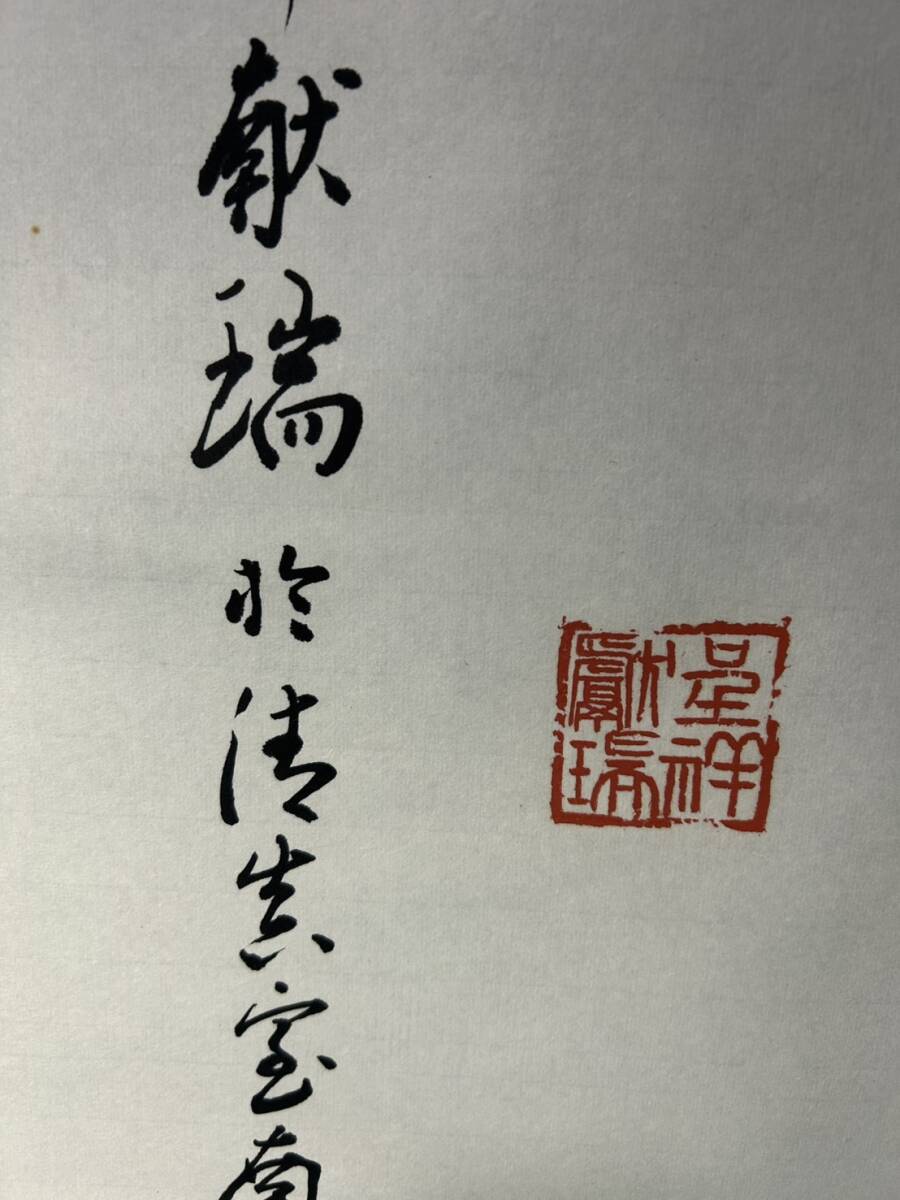 献瑞於清真室南
呈祥
獻瑞